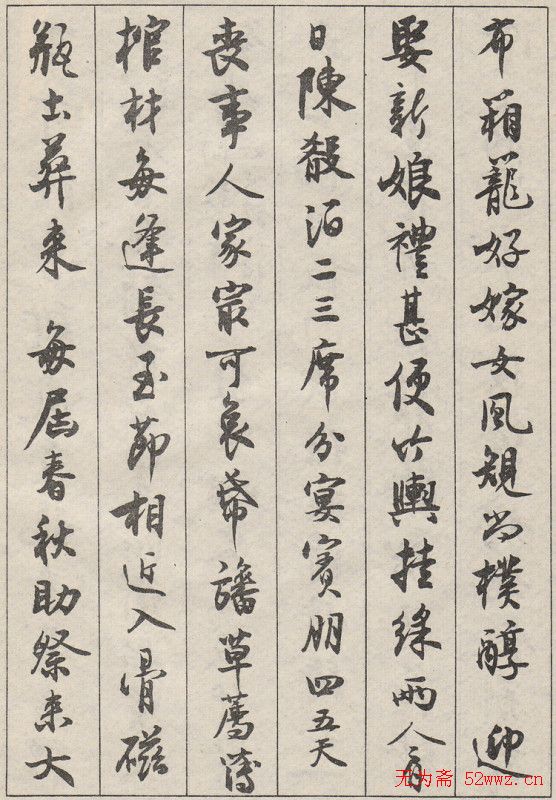 布箱籠好嫁女風規尚樸醇 迎
娶新娘禮甚便竹輿挂綵兩人肩
日陳殽酒二三席分宴賓朋四五天
喪事人家最可哀旛草薦薄
棺材每逢長至節相近入骨磁
瓶土葬來 每屆春秋助祭來大
无为斋 52wwz.cn